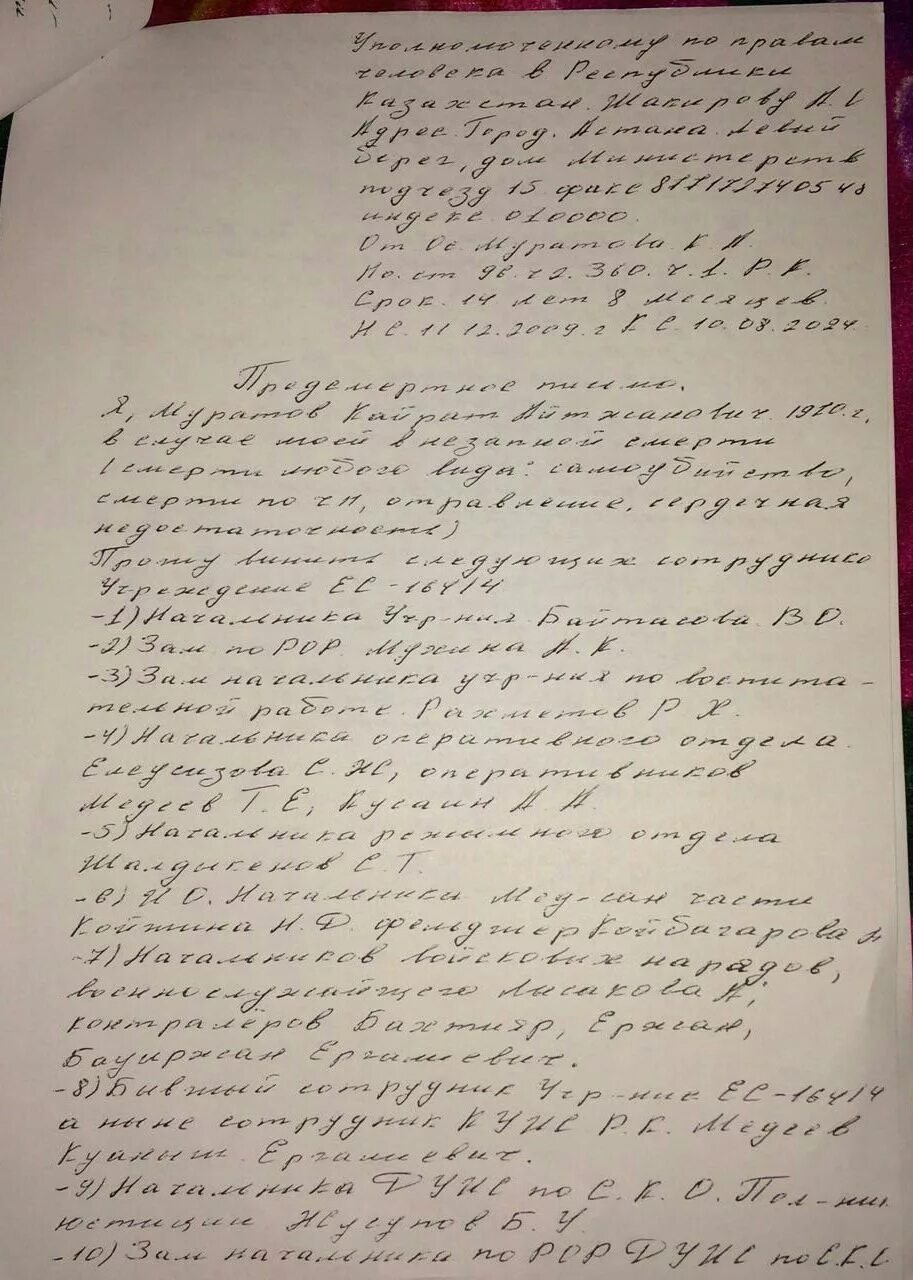 Уполномоченному по правам
человека в Республики
Казахстан. Шакирову А.
Адрес. Город. Астана. Левый
берег, дом Министерств
подъезд 15 факс 8717274054
индекс 010000.
От Ос. Муратова. К. А.
По. ст 96. ч 2. 360. ч. 1. Р. К.
Срок. 14 лет 8 месяцев.
Н С. 11 12. 2009. г К С. 10. 08. 2024
Предсмертное письмо.
Я, Муратов Кайрат Айтжанович. г,
в случае моей внезапной смерти
(смерти любого вида: самоубийство,
смерти по ЧП, отравление, сердечная
недостаточность)
Прошу винить следующих сотруднико
Учреждение ЕС-164/4
-1) Начальника Учр-ния. Байтасова. В О.
-2) Зам по РОР. Мужина А. К.
-3) Зам начальника учр-ния по воспита-
тельной работе. Рахметов Р Х.
-4) Начальника оперативного отдела.
Елеусизова С. Ж, оперативников
Медеев Т. Е, Кусаин А. А.
-5) Начальника режимного отдела
Шалдыкенов С. Т.
-6) И О. Начальника Мед-сан части
Койшина Н. Д. фельдшер Койбагарова
-7) Начальников войсковых нарядов,
военнослужайщего Лисакова А,
контралёров Бахтияр, Ержан,
Бауиржан Ергалиевич.
-8) Бившый сотрудник Учр-ние ЕС-164/4
а ныне сотрудник КУИС Р. К. Медеев
Куаныш. Ергалиевич.
-9) Начальника ДУИС по С. К. О. Пол-ник
юстиции Жусупов Б. У.
-10) Зам начальника по РОР ДУИС по С. К.